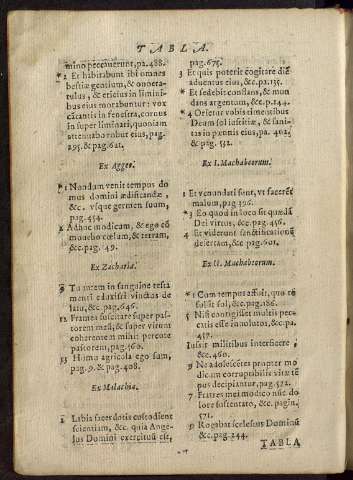 TABLA.
mino peccaverunt, pa. 488.
2 Et habitabunt ibi omnes
bestiæ gentium, & onocra-
culus, & ericius in limini-
bus eius morabuntur: vox
cātantis in fenestra, corvus
in super liminari, quoniam
attenuabo robur eius, pag.
295. & pag. 621.
Ex Aggeo.
1 Nondum venit tempus do
mus domini ædificandæ,
&c. vsque germen suum,
pag. 454.
Adhuc modicum, & ego cō
movebo cœlum, & terram,
&c. pag. 149.
Ex Zacharia.
Tu autem in sanguine testa
menti eduxisti vinctos de
lacu, &c. pag. 646.
Framea suscitare super pas-
torem meū, & super virum
cohærentē mihi percute
pastorem, pag. 560.
13 Homo agricola ego sum,
pag. 9. & pag. 408.
Ex Malachia.
Labia sacerdotis custodient
scientiam, &c. quia Ange-
lus Domini exercituū est,
pag. 675.
3 Et quis poterit cogitare diē
adventus eius, &c. p. 135.
Et sedebit conflans, & mun
dans argentum, &c. p. 144.
4 Orietur vobis timentibus
Deum sol iustitiæ, & sani-
tas in pennis eius, pa. 402
& pag. 552.
Ex I. Machabeorum.
1 Et vęnundati sunt, vt facerēt
malum, pag 396.
3 Eo quod in loco sit quædā
Dei virtus, &c. pag. 456.
4 Et viderunt sanctificationē
desertam, &c. pag. 601.
Ex II. Machabeorum.
1 Cum tempus affuit, quo
sol, &c. pag. 186.
5 Nisi contigisset multis pec
catis esse involutos, &c. pa.
Iussit militibus interficere,
&c. 460.
9 Ne adolescētes propter mo
dicum corruptibilis vitæ
decipiantur, pag. 522.
7 Fratres mei modico nūc do
lore sustentato, &c. pagin.
571.
9 Rogabat scelestus Dominū
&c. pag. 244.
TABLA